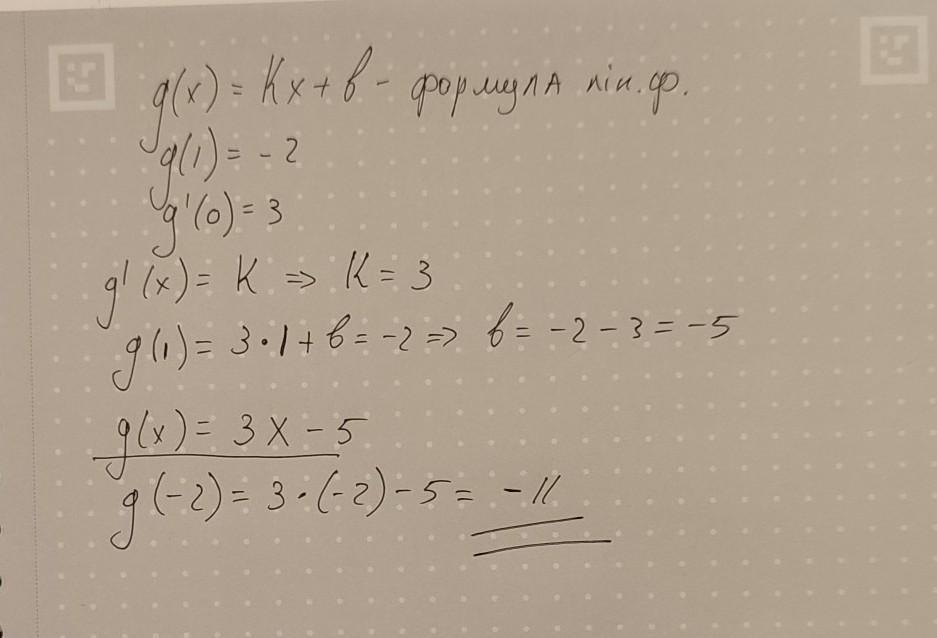 g(x) = Kx + b - формула лін. ф.
g(1) = - 2
g'(0) = 3
g'(x) = K => K = 3
g(1) = 3 • 1 + b = -2 => b = -2 - 3 = -5
g(x) = 3x - 5
g(-2) = 3 · (-2) - 5 = -11